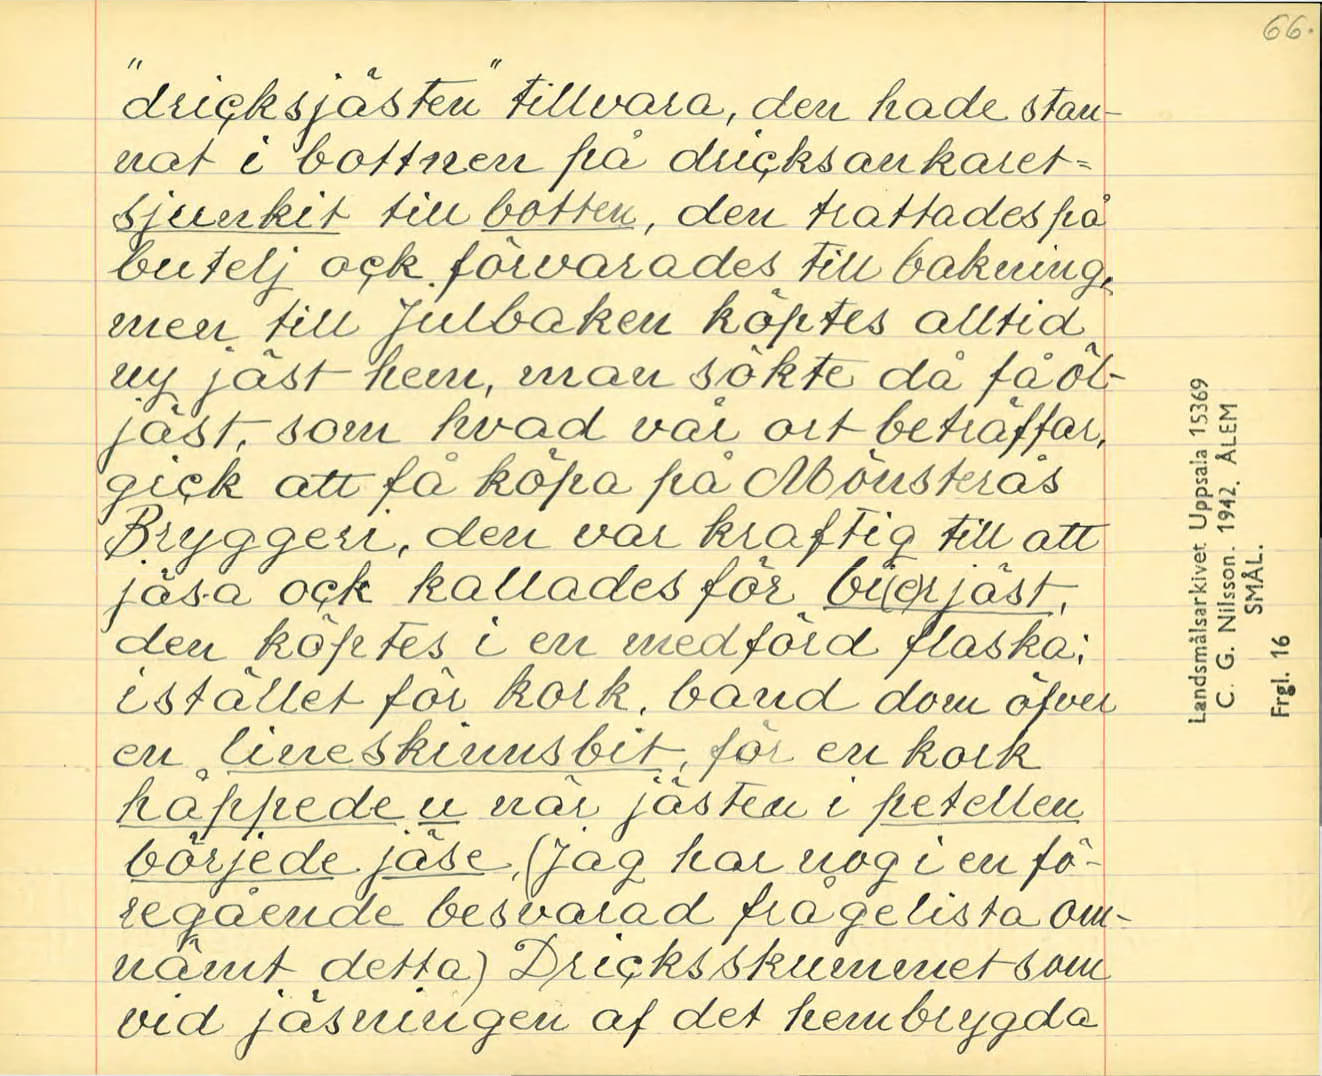 66.
"driçksjästen" tillvara, den hade stan-
nat i bottnen på driçksankaret=
sjunkit till botten, den trattades på
butelj oçk förvarades till bakning,
men till Julbaken köptes alltid
ny jäst hem, man sökte då få öl-
jäst, som hvad vår ort beträffar,
giçk att få köpa på Mönsterås
Bryggeri, den var kraftig till att
jäsa oçk kallades för bi(e)rjäst,
den köptes i en medförd flaska;
istället för kork, band dom öfver
en lineskinnsbit, för en kork
håppede u när jästen i petellen
börjede jäse, (Jag har nog i en fö-
regående besvarad frågelista om-
nämt detta) Driçksskummet som
vid jäsningen af det hembrygda
Landsmålsarkivet Uppsala 15369
C. G. Nilsson. 1942. ÅLEM
SMÅL.
Frgl. 16